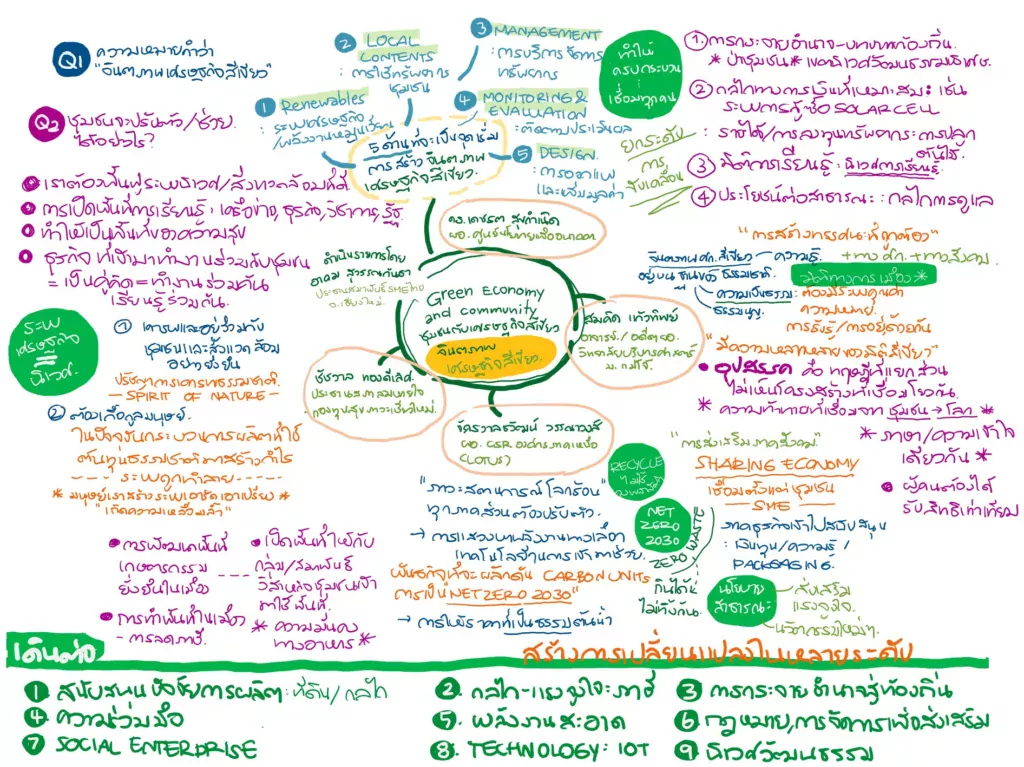 Q1
ความหมายคำว่า
"จินตภาพเศรษฐกิจสีเขียว"
Q2 ชุมชนจะปรับตัว/ช่วย
ได้อย่างไร?
เราต้องฟื้นฟูระบบนิเวศ/สิ่งแวดล้อมที่ดี
การเปิดพื้นที่การเรียนรู้ : เครือข่าย, ธุรกิจ, วิชาการ, รัฐ
ทำให้เป็นพื้นที่ของความสุข
ธุรกิจ ที่เข้ามาทำงานร่วมกับชุมชน
= เป็นคู่คิด = ทำงานร่วมกัน
เรียนรู้ร่วมกัน
② LOCAL
CONTENTS
: การใช้ทรัพยากร
ชุมชน
③ MANAGEMENT
: การบริหารจัดการ
ทรัพยากร
① Renewables
: ระบบเศรษฐกิจ
/พลังงานหมุนเวียน
④ MONITORING &
EVALUATION
: ติดตามประเมินผล
⑤ DESIGN
: การออกแบบ
และเพิ่มมูลค่า
5 ด้านที่จะเป็นจุดเริ่ม
การสร้างจินตภาพ
เศรษฐกิจสีเขียว
ทำให้
ครบกระบวน
เชื่อมทุกคน
ยกระดับ
การ
ขับเคลื่อน
① การกระจายอำนาจ-บทบาทท้องถิ่น
* ป่าชุมชน * เขตนิเวศวัฒนธรรมพิเศษ
② กลไกทางการเงินที่เหมาะสม : เช่น
ระบบการกู้-ซื้อ SOLAR CELL
: รายได้/การลงทุนทรัพยากร การปลูก
ต้นไม้
③ มิติการเรียนรู้ : นิเวศการเรียนรู้
④ ประโยชน์ต่อสาธารณะ : กลไกการดูแล
ดร.เดชรต สุขกำเนิด
ผอ.ศูนย์นโยบายเพื่ออนาคต
ดำเนินรายการโดย
อาคม สุวรรณกันธา
ประธานสมาพันธ์ SME ไทย
จ.เชียงใหม่
Green Economy
and community
ชุมชนกับเศรษฐกิจสีเขียว
จินตภาพ
เศรษฐกิจสีเขียว
สมคิด แก้วทิพย์
อาจารย์/อดีตผอ.
วิทยาลัยบริหารศาสตร์
ม.แม่โจ้
ชัชวาล ทองดีเลิศ
ประธานสภาลมหายใจ
กองทุนสุขภาวะเชียงใหม่
ผอ. CSR องค์กรภาคเหนือ
(LOTUS)
"การสร้างกรรมสิทธิ์ที่ถูกต้อง"
จินตภาพ ศก.สีเขียว
อยู่บนฐานของธรรมชาติ
ความรู้
+ทาง ศก. +ทางสังคม
มิติทางการเมือง *
ความเป็นธรรม : ต้องมีระบบคุณค่า
ความหมาย
การรับรู้/การอยู่ด้วยกัน
"มีความหลากหลายของมิติสีเขียว"
อุปสรรค คือ ทฤษฎีที่แยกส่วน
ไม่เห็นโครงสร้างที่เชื่อมโยงกัน
* ความท้าทายที่เชื่อมจาก ชุมชน → โลก *
* ภาษา/ความเข้าใจ
เดียวกัน *
ผู้คนต้องได้
รับสิทธิเท่าเทียม
ระบบ
เศรษฐกิจ
=
นิเวศ
① เคารพและอยู่ร่วมกับ
ชุมชนและสิ่งแวดล้อม
อย่างยั่งยืน
ปรัชญาการเคารพธรรมชาติ
— SPIRIT OF NATURE —
② ต้องเกื้อกูลมนุษย์
ในปัจจุบันกระบวนการผลิตที่ใช้
ต้นทุนธรรมชาติมาสร้างกำไร
--- ระบบถูกทำลาย ---
* มนุษย์เราสร้างระบบเอารัดเอาเปรียบ *
"เกิดความเหลื่อมล้ำ"
การพัฒนาพื้นที่
เกษตรกรรม
ยั่งยืนในเมือง
เปิดพื้นที่ให้กับ
กลุ่ม/สมาพันธ์
วิสาหกิจชุมชนเข้า
มาใช้พื้นที่
การทำพื้นที่ในเมือง
— การลดภาษี
* ความมั่นคง
ทางอาหาร *
"ภาวะสถานการณ์โลกร้อน"
ทุกภาคส่วนต้องปรับตัว
→ การแสวงหาพลังงานทางเลือก
เทคโนโลยีด้านการเข้ามาช่วย
พันธกิจที่จะผลักดัน CARBON UNITS
การเป็น NET ZERO 2030"
→ การให้ราคาที่เป็นธรรมต้นน้ำ
RECYCLE
NET
ZERO
2030
ZERO WASTE
กินได้
ไม่ทิ้งกัน
"การส่งเสริมภาคสังคม"
SHARING ECONOMY
เชื่อมตั้งแต่ชุมชน
— SME —
ภาคธุรกิจเข้าไปสนับสนุน
: เงินทุน/ความรู้/
PACKAGING
นโยบาย
สาธารณะ
ส่งเสริม
แรงจูงใจ
นวัตกรรมใหม่ๆ
เดินต่อ
สร้างการเปลี่ยนแปลงในหลายระดับ
① สนับสนุนปัจจัยการผลิตฯ : ที่ดิน/กลไก
② กลไก-แรงจูงใจ-ภาษี
③ การกระจายอำนาจสู่ท้องถิ่น
④ ความร่วมมือ
⑤ พลังงานสะอาด
⑥ กฎหมาย, การจัดการเพื่อส่งเสริม
⑦ SOCIAL ENTERPRISE
⑧ TECHNOLOGY : IOT
⑨ นิเวศวัฒนธรรม